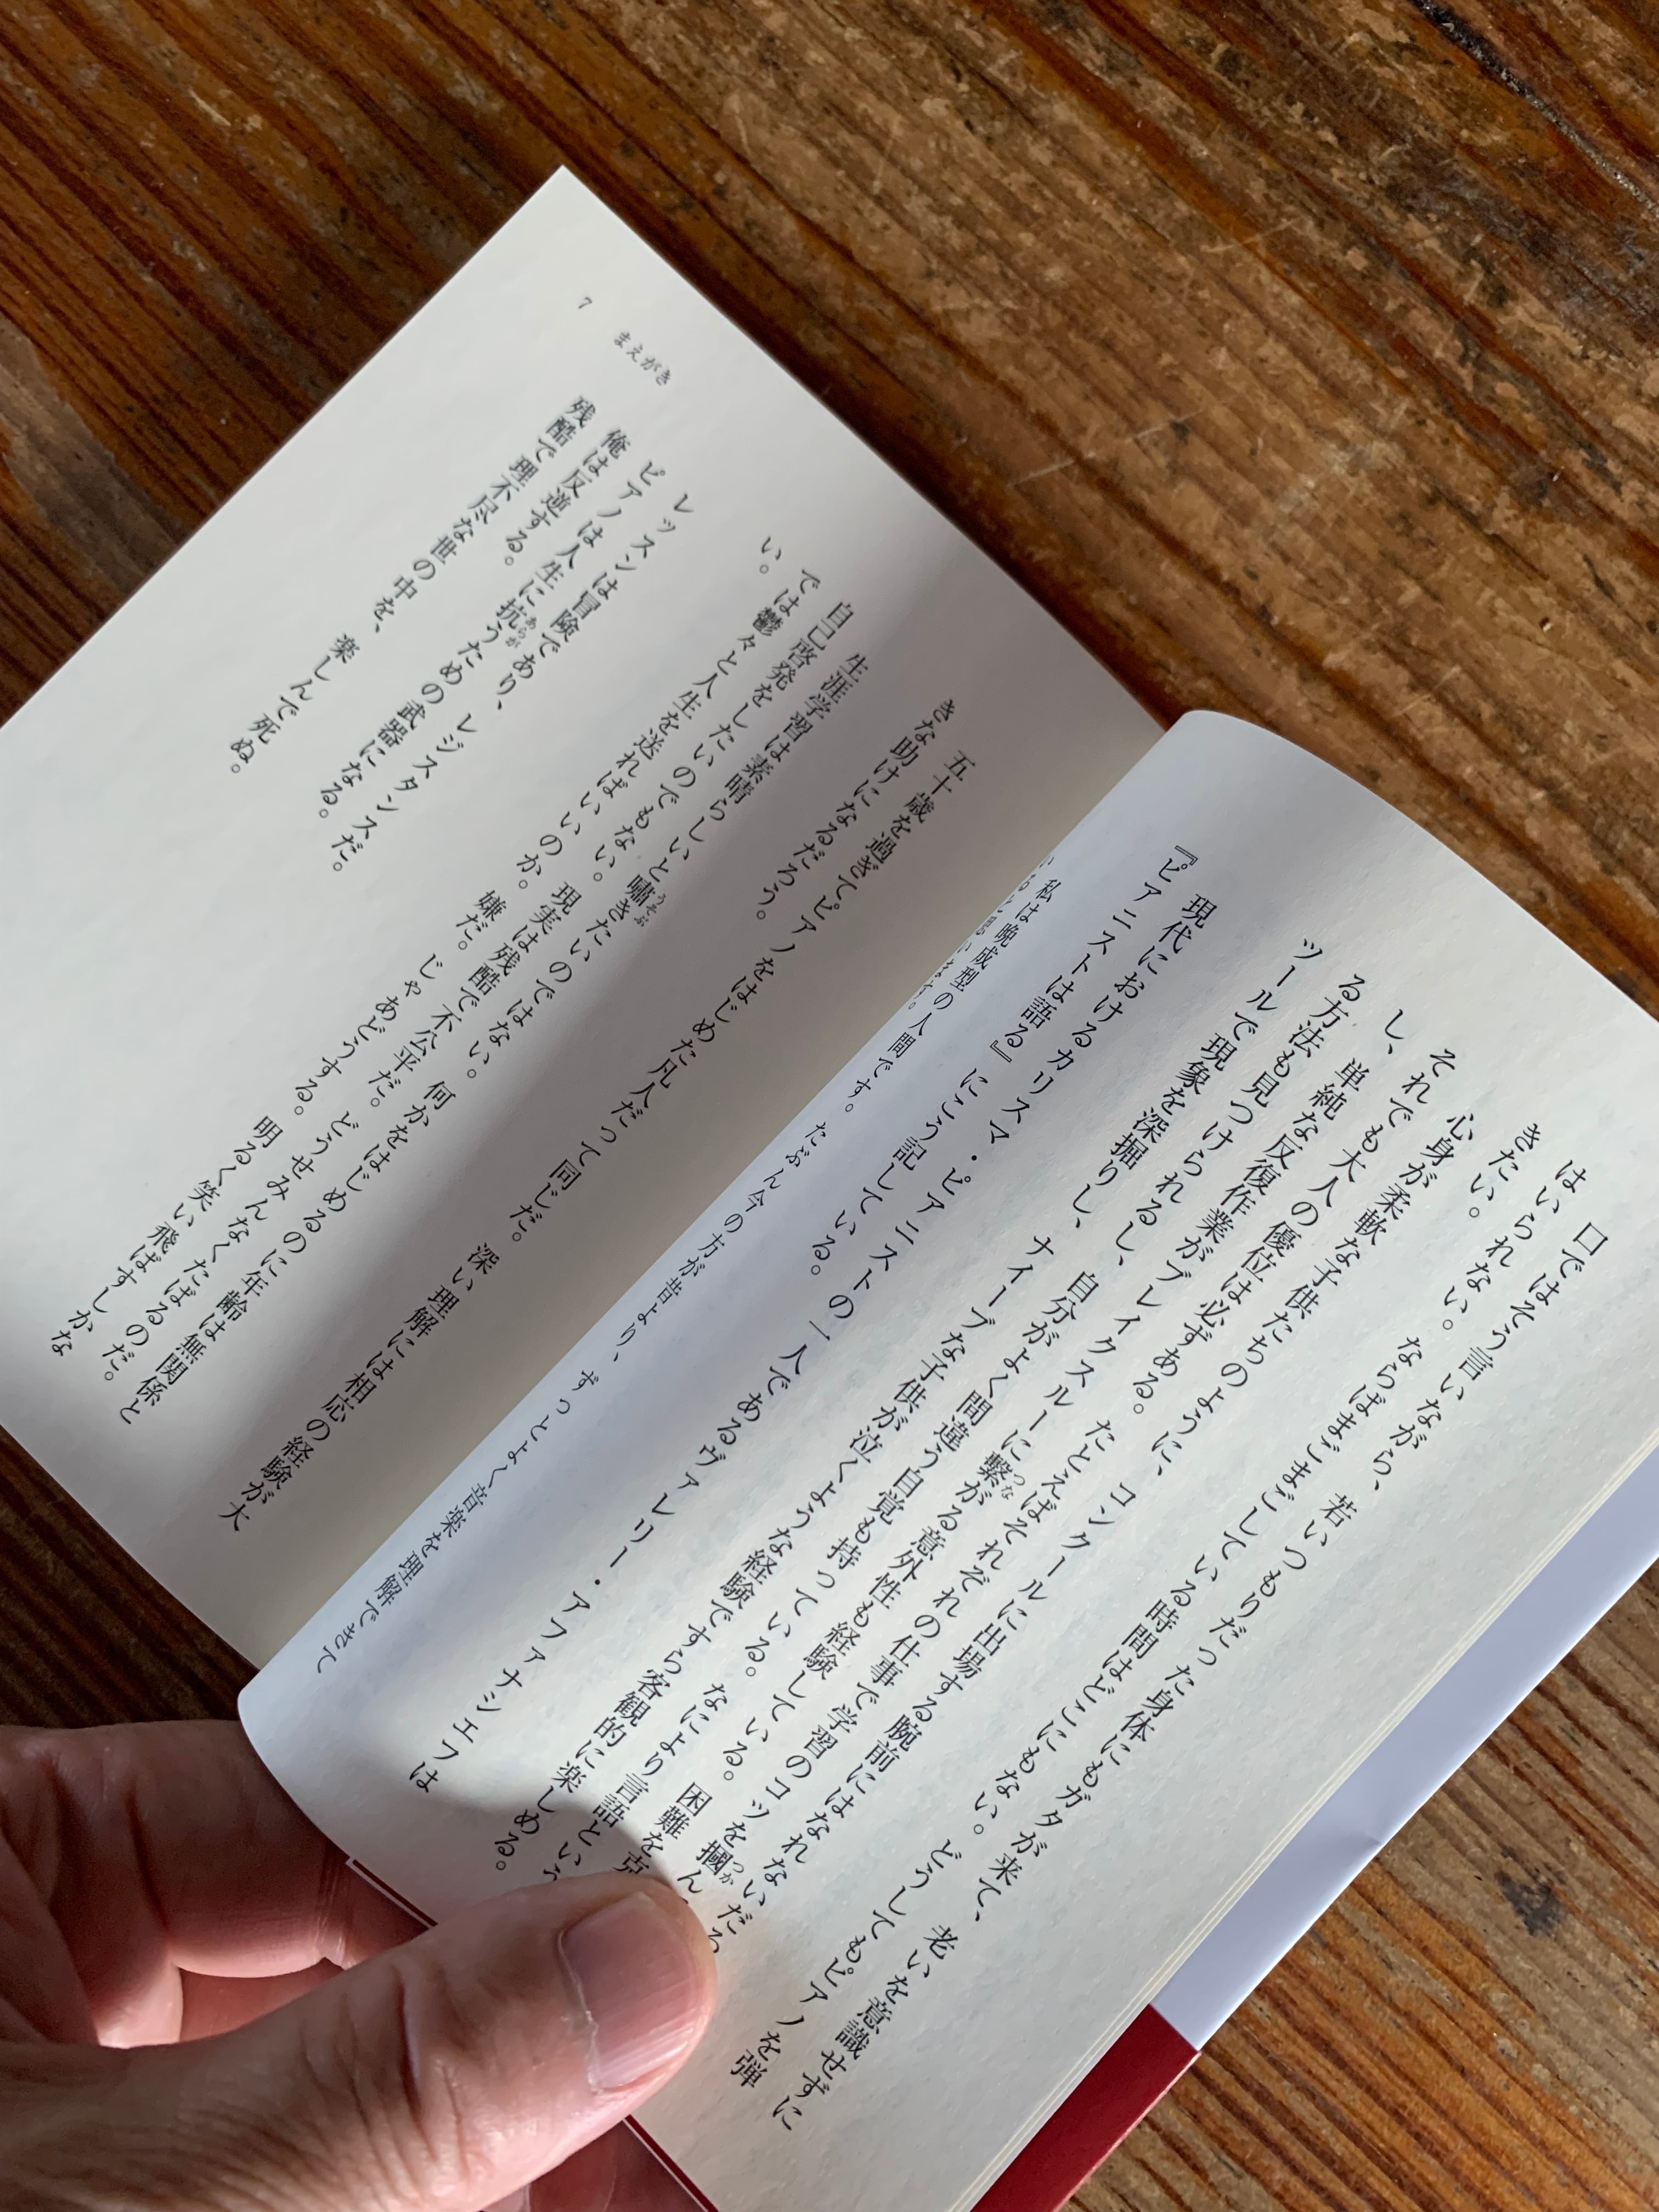 口ではそう言いながら、若いつもりだった身体にもガタが来て、老いを意識せずに
はいられない。ならばまごまごしている時間はどこにもない。どうしてもピアノを弾
きたい。
心身が柔軟な子供たちのように、コンクールに出場する腕前にはなれないだろ
それでも大人の優位は必ずある。たとえばそれぞれの仕事で学習のコツを摑ん
し、単純な反復作業がブレイクスルーに繫がる意外性も経験している。困難を克
る方法も見つけられるし、自分がよく間違う自覚も持っている。なにより言語という
ツールで現象を深掘りし、ナイーブな子供が泣くような経験ですら客観的に楽しめる。
現代におけるカリスマ・ピアニストの一人であるヴァレリー・アファナシエフは
『ピアニストは語る』にこう記している。
私は晩成型の人間です。たぶん今の方が昔より、ずっとよく音楽を理解できて
いると思います。
五十歳を過ぎてピアノをはじめた凡人だって同じだ。深い理解には相応の経験が大
きな助けになるだろう。
生涯学習は素晴らしいと嘯きたいのではない。何かをはじめるのに年齢は無関係と
自己啓発をしたいのでもない。現実は残酷で不公平だ。どうせみんなくたばるのだ。
では鬱々と人生を送ればいいのか。嫌だ。じゃあどうする。明るく笑い飛ばすしかな
い。
レッスンは冒険であり、レジスタンスだ。
ピアノは人生に抗うための武器になる。
俺は反逆する。
残酷で理不尽な世の中を、楽しんで死ぬ。
7 まえがき